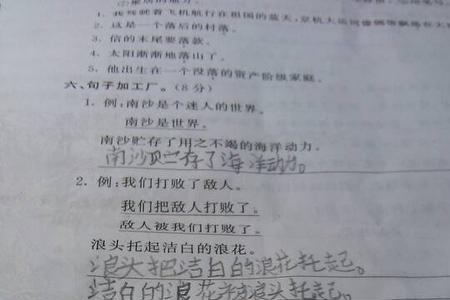 2. 这是一个落后的村落。
3. 信的末尾要落款。
4. 太阳渐渐地落山了。
5. 他出生在一个没落的资产阶级家庭。
六、句子加工厂。(8分)
1. 例:南沙是个迷人的世界。
南沙是世界。
南沙贮存了用之不竭的海洋动力。
南沙贝宁存了海洋动力。
2. 例:我们打败了敌人。
我们把敌人打败了。
敌人被我们打败了。
浪头托起洁白的浪花。
浪头把洁白的浪花托起。
洁白的浪花被浪头托起。